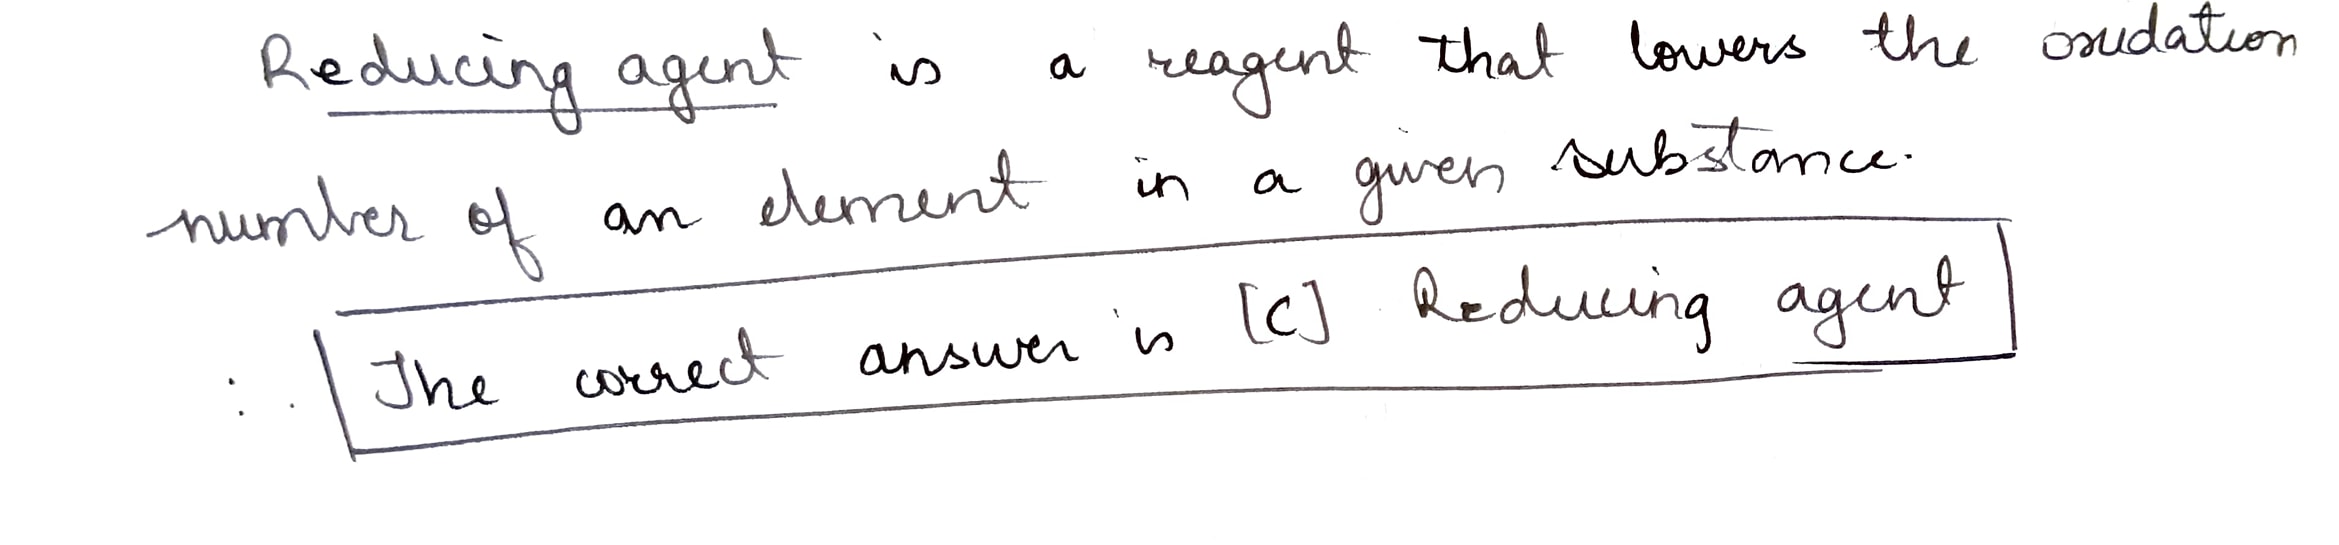 Reducing agent is a reagent that lowers the oxidation
number of an element in a given substance.
∴ The correct answer is [C] Reducing agent